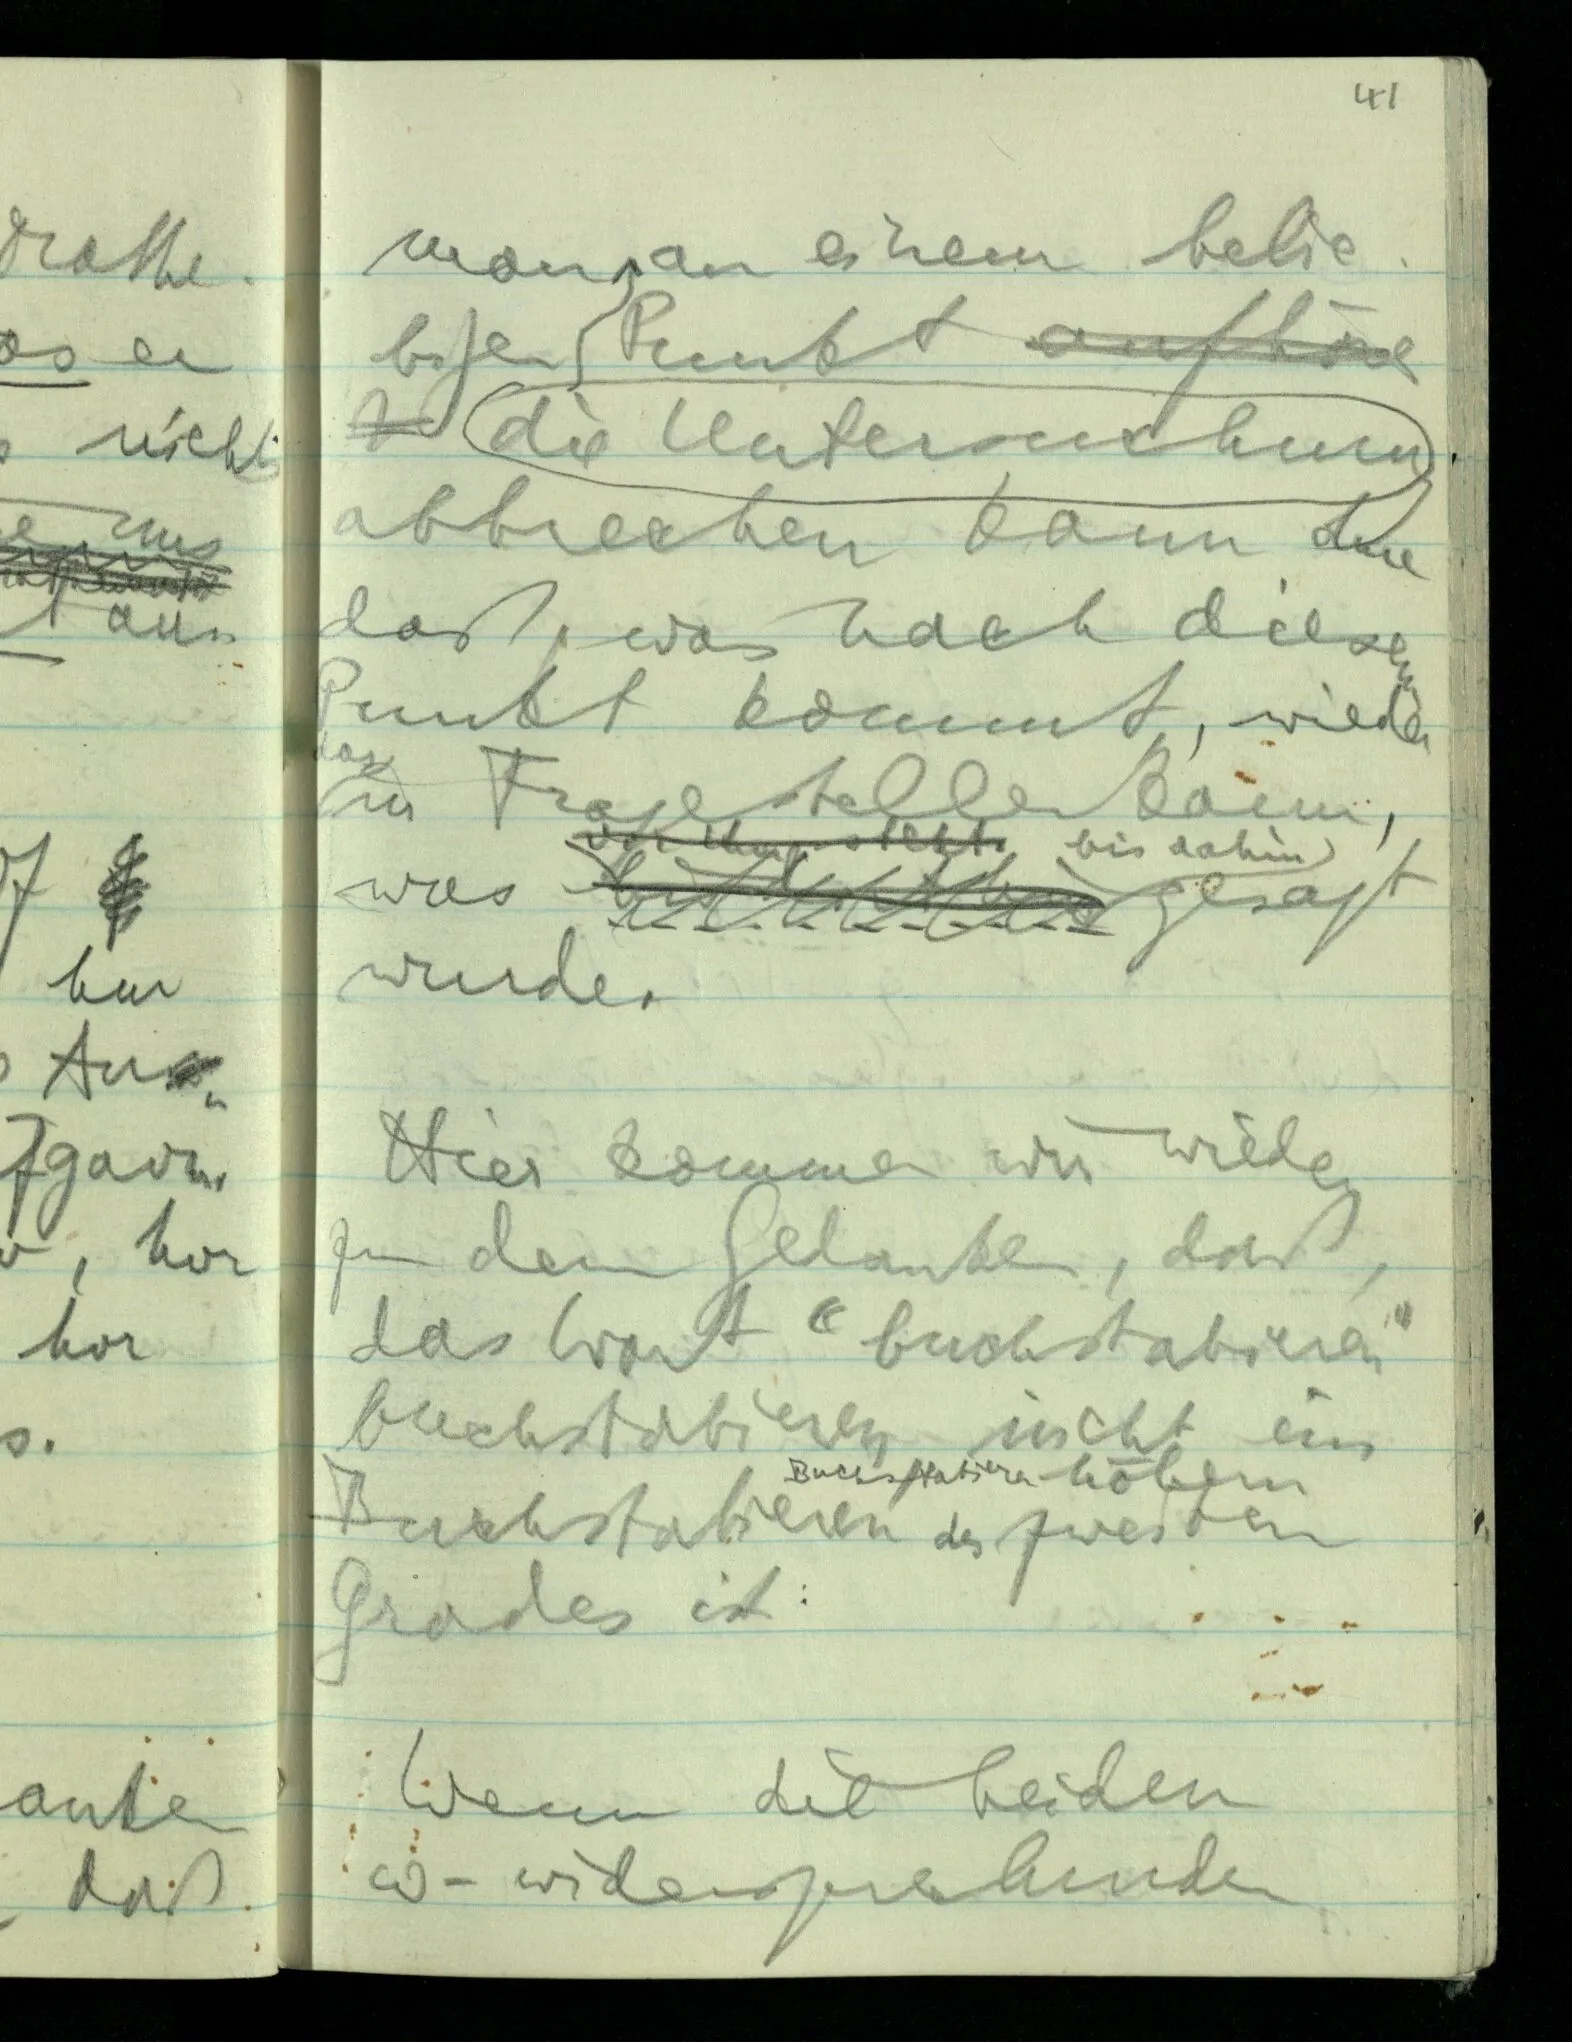 41
drathe.
as er
nicht
aus
nur
vor
vor
s.
daß
man, an einem belie-
bigen Punkt aufhöre
die Untersuchung
abbrechen kann ohne
daß, was nach diesem
Punkt kommt, wieder
das
in Frage stellen kann,
vor ihm steht bis dahin
was gesagt
wurde.
Hier kommen wir wieder
zu dem Gedanken, daß,
das Wort “buchstabieren”
buchstabieren nicht ein
Buchstabieren höhern
Buchstabieren des zweiten
Grades ist:
Wenn die beiden
ω-widersprechenden